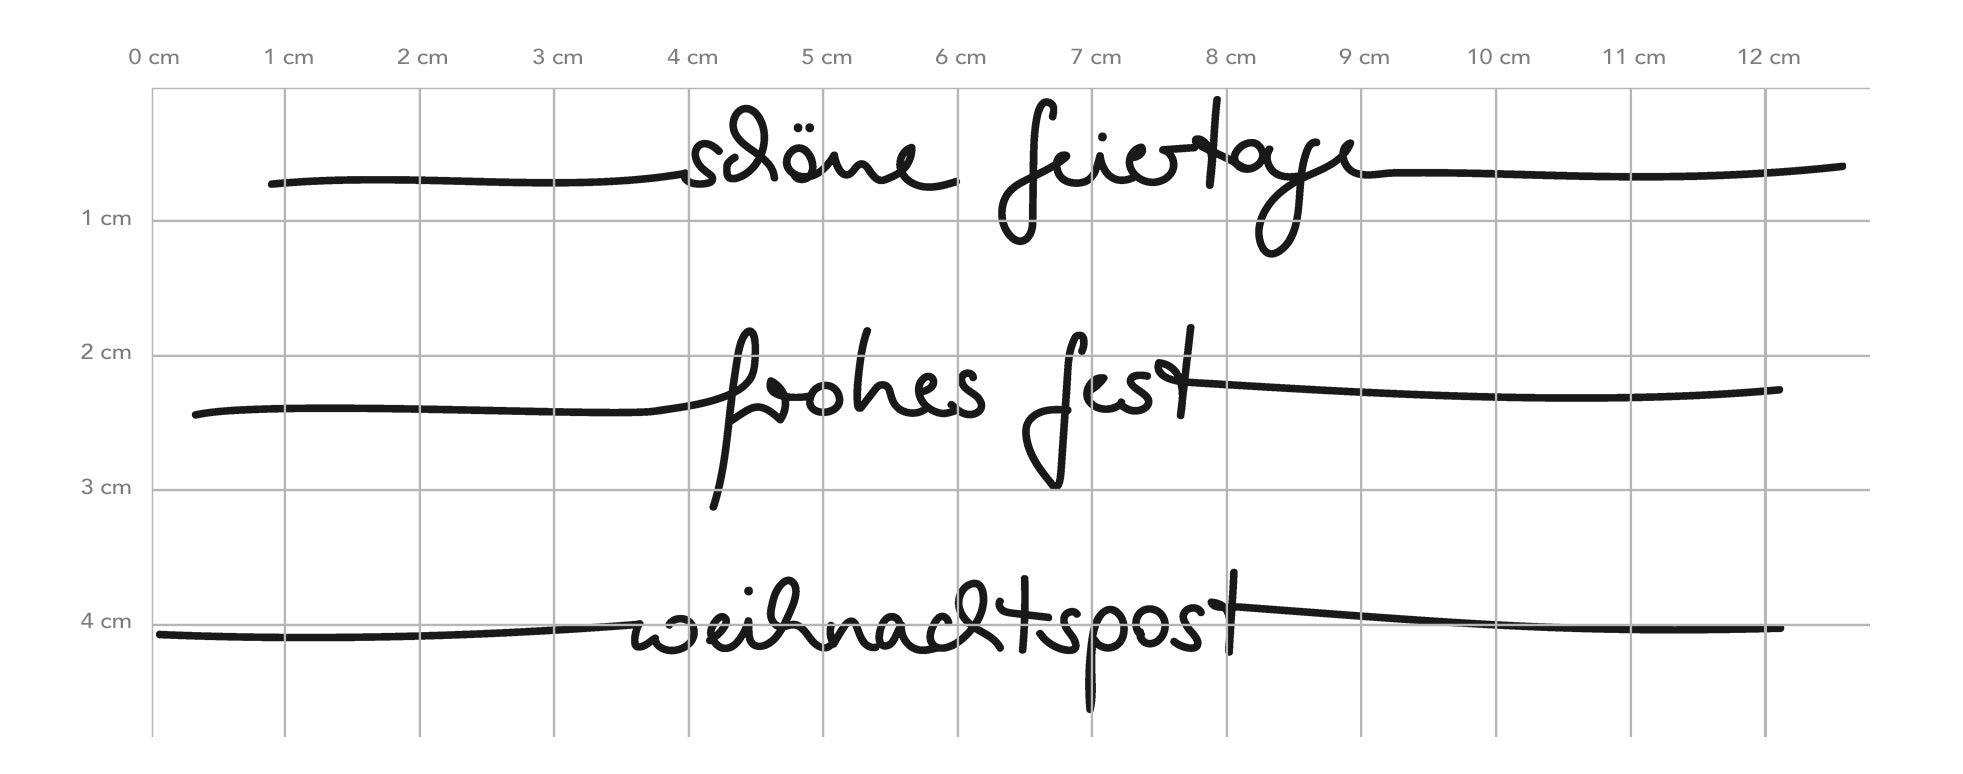 0 cm 1 cm 2 cm 3 cm 4 cm 5 cm 6 cm 7 cm 8 cm 9 cm 10 cm 11 cm 12 cm
schöne feiertage
1 cm
2 cm
frohes fest
3 cm
4 cm
weihnachtspost